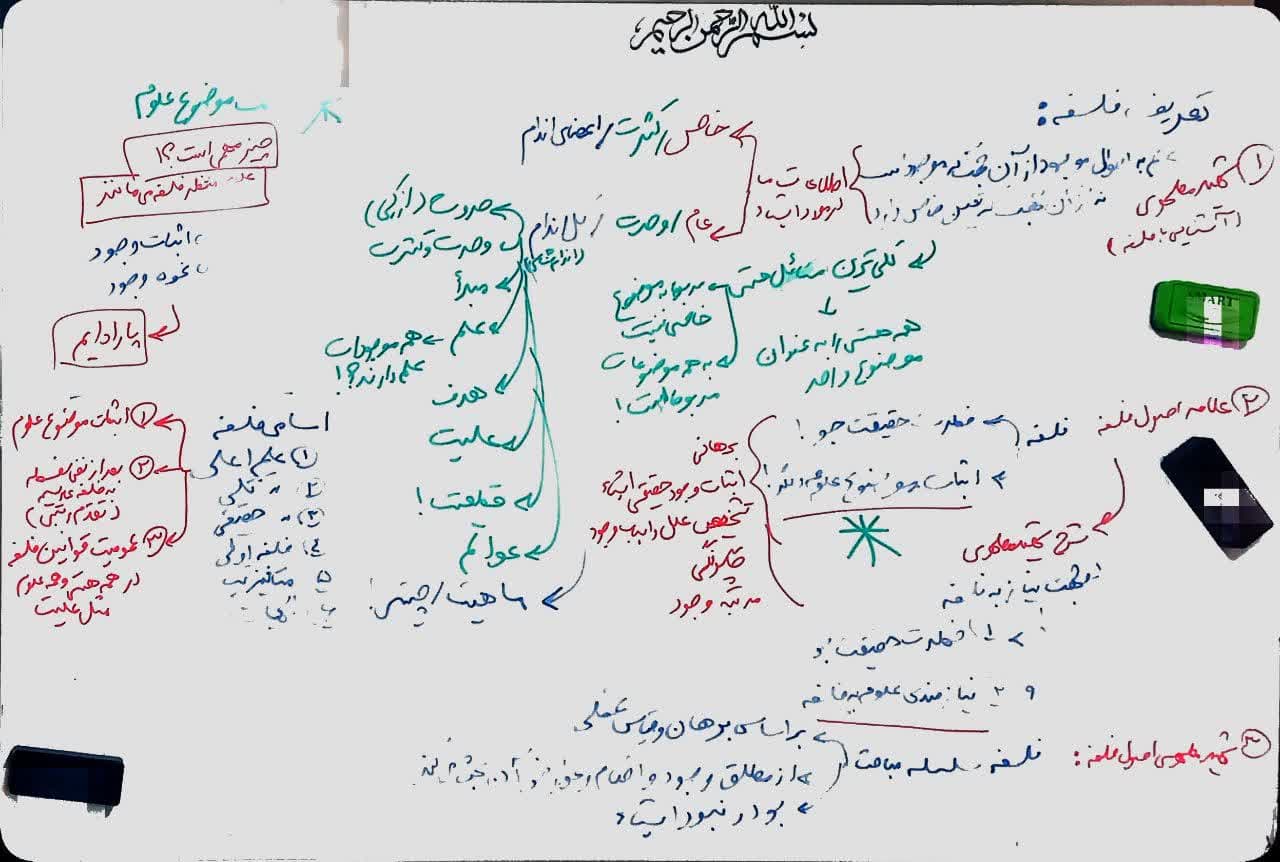 بسم الله الرحمن الرحیم
تعریف فلسفه:
① شهید مطهری
(آشنایی با فلسفه)
علم به احوال موجود از آن جهت که موجود است
نه از آن جهت که تعین خاص دارد
اطلاعات ما
خاص / کثرت / اعضای اندام
عام / وحدت / کل اندام
(اندام شناسی)
کلی ترین مسائل هستی
همه هستی را به عنوان
موضوع واحد
مربوط به موضوع
خاصی نیست
به همه موضوعات
مربوط است!
حدوث (ازلی)
وحدت و کثرت
مبدأ
علم ← همه موجودات
علم دارند؟!
هدف
علیت
قطعیت!
عوالم
ماهیت / چیستی
موضوع علوم
چیز مهمی است؟!
علوم منتظر فلسفه می مانند
اثبات وجود
نحوه وجود
پارادایم
② علامه اصول فلسفه
فلسفه
فطرت حقیقت جو!
اثبات موضوع علوم دیگر!
برهانی
اثبات وجود حقیقی اشیاء
تشخیص علل و اسباب وجود
چگونگی
مرتبه وجود
شرح شهید مطهری
از جهت نیاز به فلسفه
۱) فطرت حقیقت جو
و ۲ نیازمندی علوم به فلسفه
اسامی فلسفه
① علم اعلی
② " کلی
③ " حقیقی
④ فلسفه اولی
۵ متافیزیک
۶ الهیات
① اثبات موضوع علوم
② بعد از نفی سفسطه
به فلسفه می رسیم
③ عمومیت قوانین فلسفه
در همه هستی و همه علوم
مثل علیت
③ شهید مطهری اصول فلسفه:
فلسفه سلسله مباحث
براساس برهان و قیاس عقلی
از مطلق وجود و احکام و عوارض آن بحث می کند
بود و نبود اشیاء
SMART